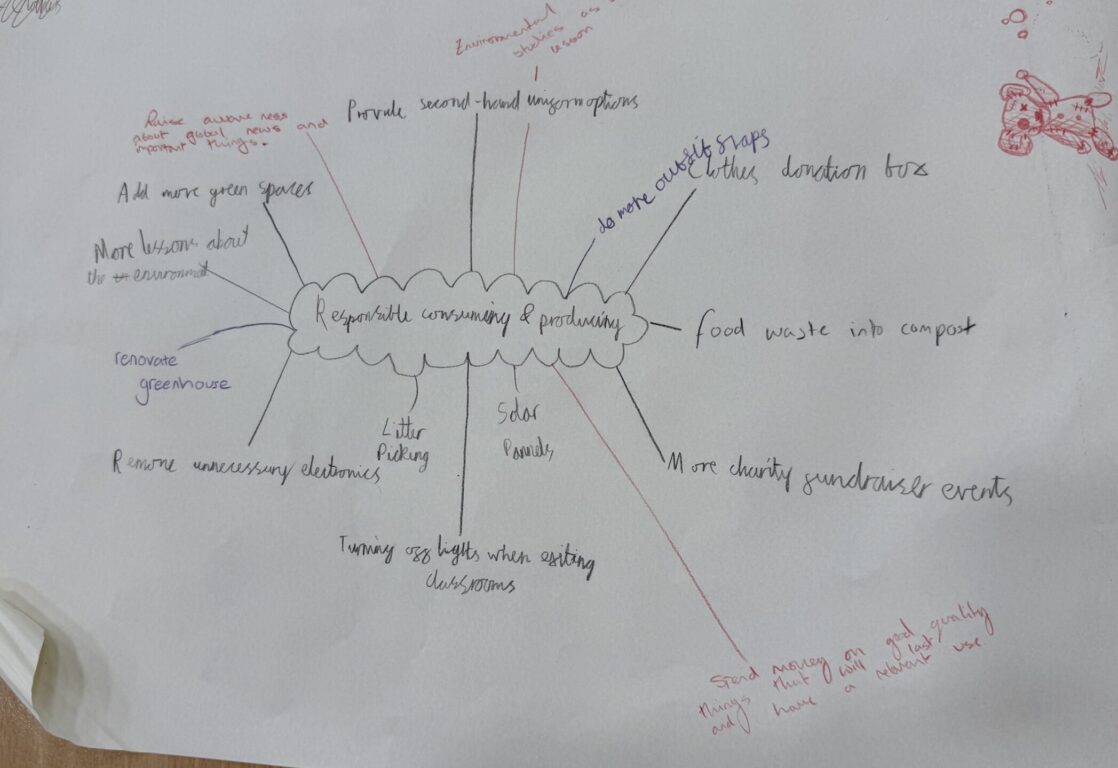 Environmental
studies as a
lesson
Provide second-hand uniform options
Raise awareness
about global news and
important things.
do more outfit swaps
Clothes donation box
Add more green spaces
More lessons about
the environment
Responsible consuming & producing
food waste into compost
renovate
greenhouse
Litter
Picking
Solar
Pannels
Remove unnecessary electronics
More charity fundraiser events
Turning off lights when exiting
classrooms
Spend money on good quality
things that will last
and have a relevant use